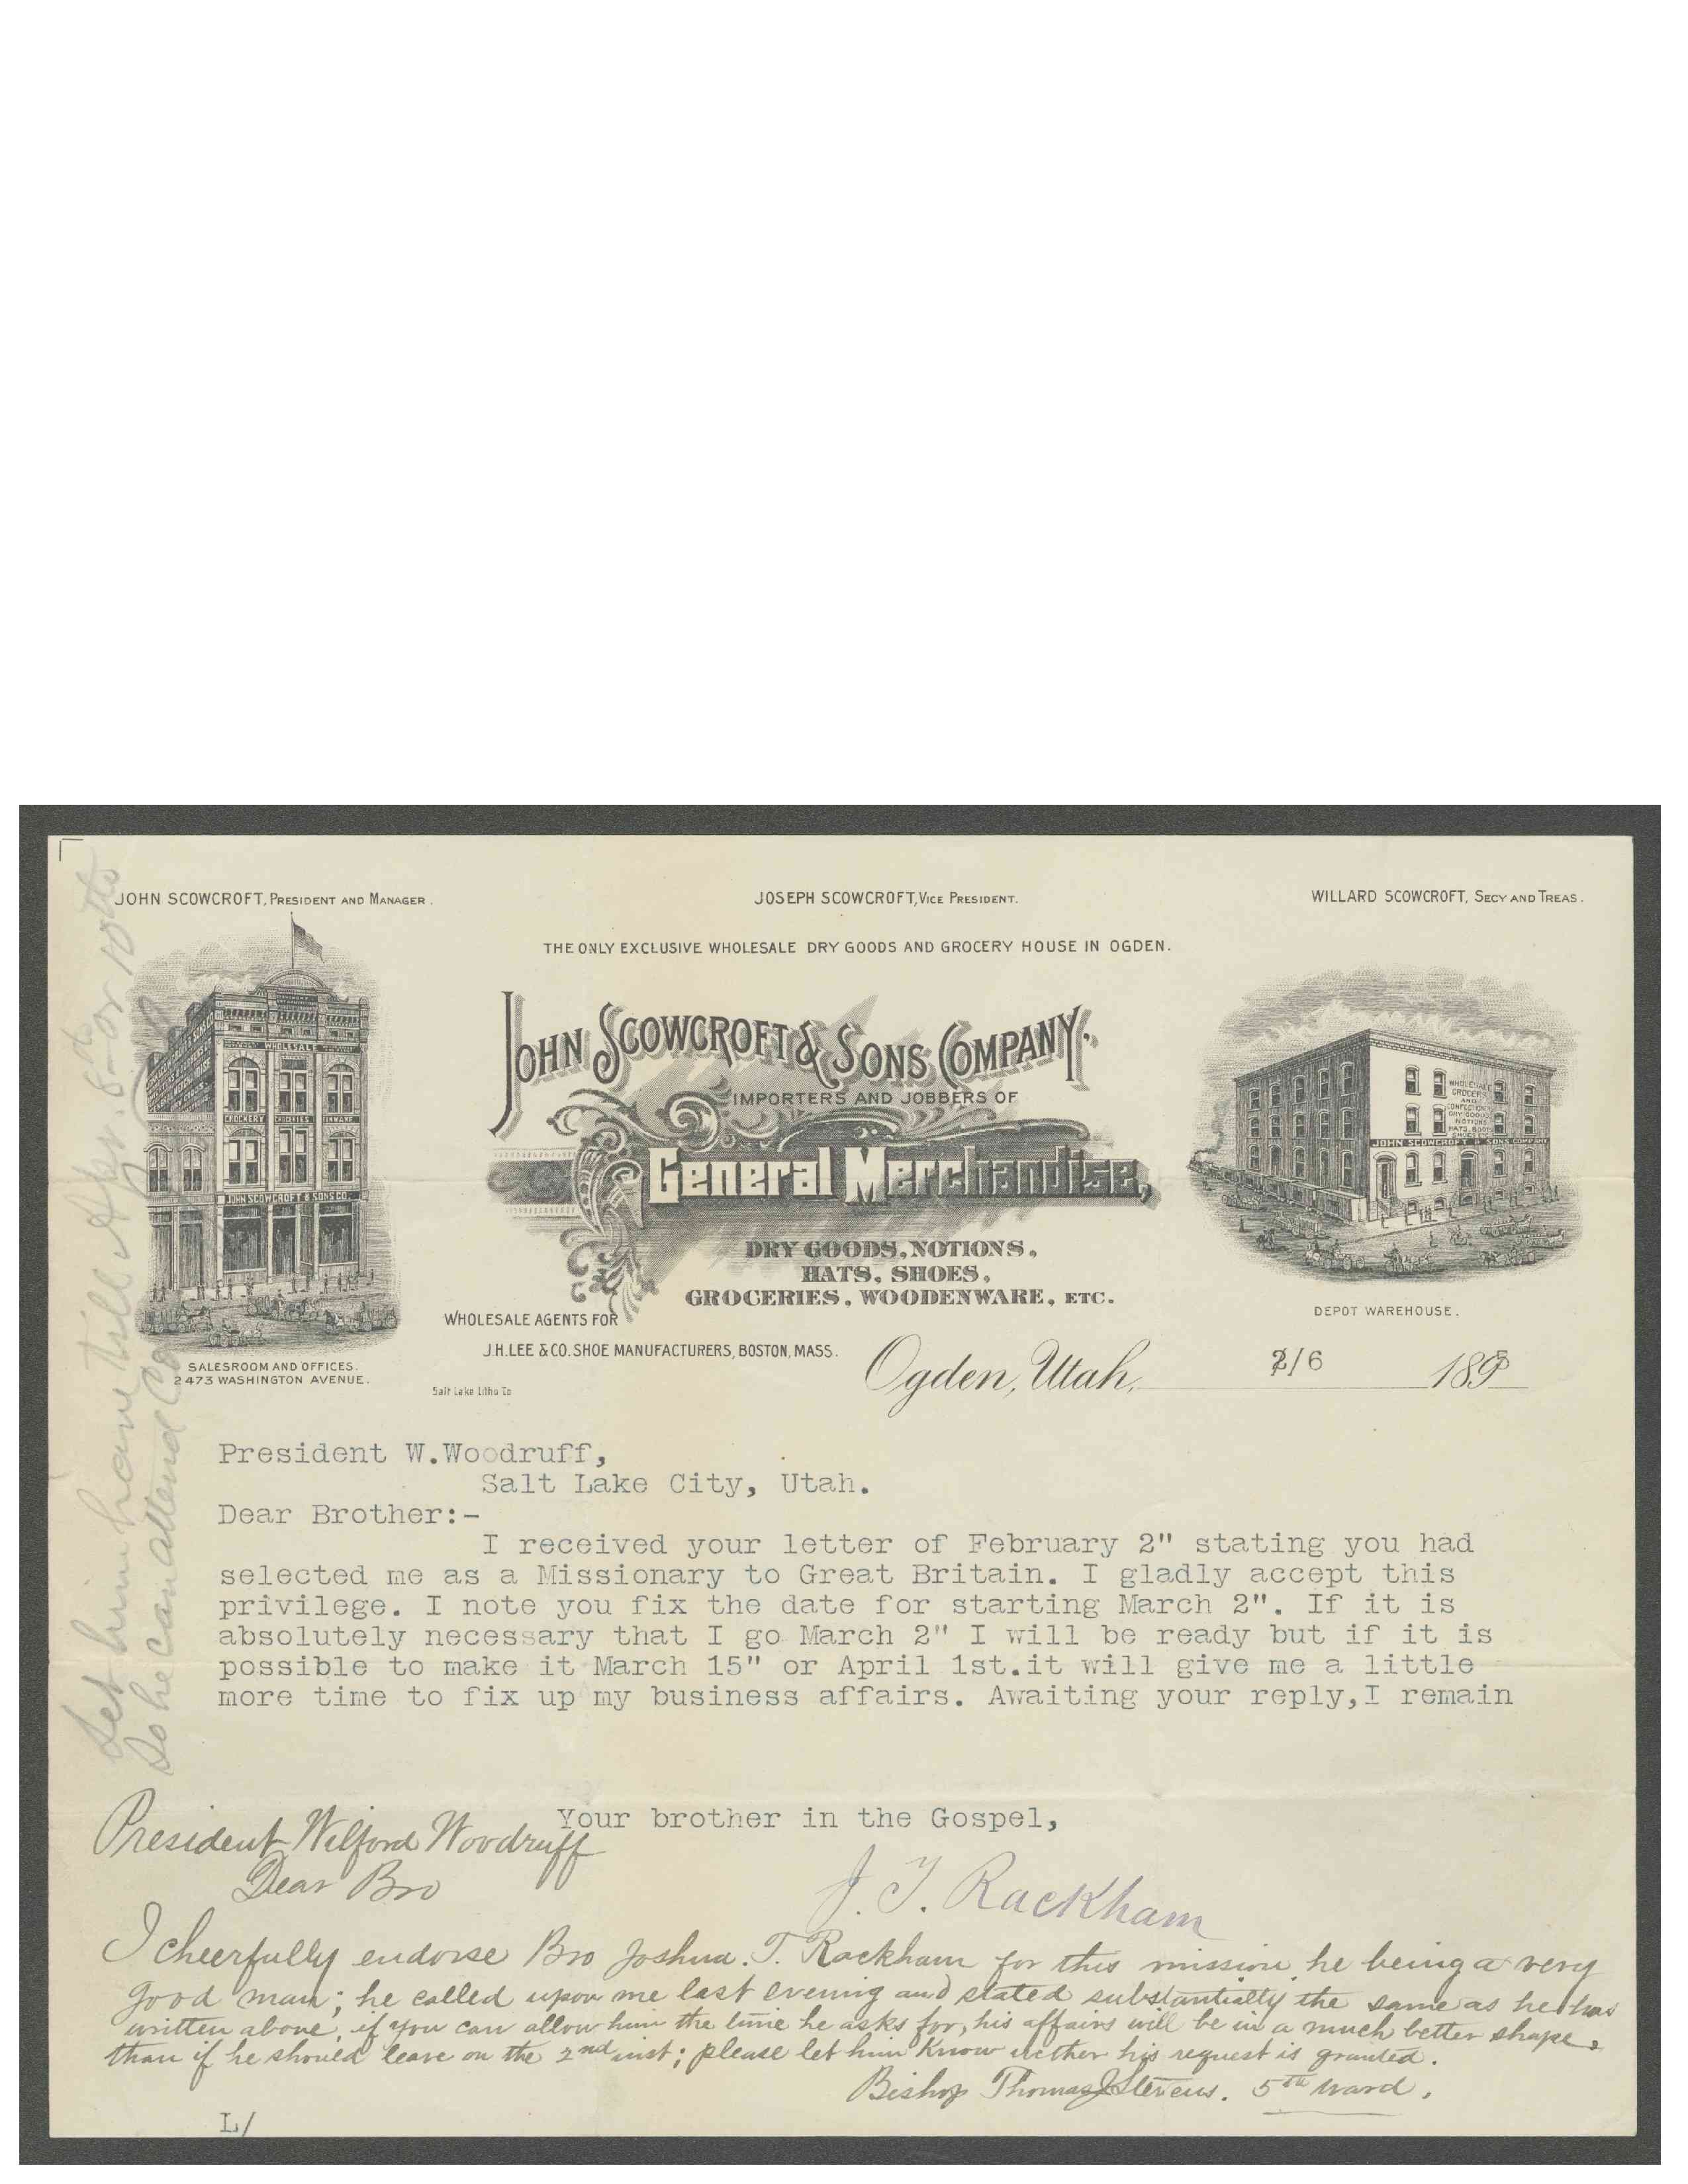 JOHN SCOWCROFT, PRESIDENT AND MANAGER.
JOSEPH SCOWCROFT, VICE PRESIDENT.
WILLARD SCOWCROFT, SECY AND TREAS.
THE ONLY EXCLUSIVE WHOLESALE DRY GOODS AND GROCERY HOUSE IN OGDEN.
JOHN SCOWCROFT & SONS COMPANY.
IMPORTERS AND JOBBERS OF
General Merchandise,
DRY GOODS, NOTIONS,
HATS, SHOES,
GROCERIES, WOODENWARE, ETC.
WHOLESALE AGENTS FOR
J.H. LEE & CO. SHOE MANUFACTURERS, BOSTON, MASS.
WHOLESALE
CROCKERY
TINWARE
JOHN SCOWCROFT & SONS CO.
SALESROOM AND OFFICES.
2473 WASHINGTON AVENUE.
WHOLESALE
GROCERS
AND
CONFECTIONERY
DRY GOODS
NOTIONS
HATS, BOOTS
SHOES
JOHN SCOWCROFT & SONS COMPANY
DEPOT WAREHOUSE.
Salt Lake Litho Co
Ogden, Utah, 2/6 1895
President W.Woodruff,
Salt Lake City, Utah.
Dear Brother:-
I received your letter of February 2" stating you had
selected me as a Missionary to Great Britain. I gladly accept this
privilege. I note you fix the date for starting March 2". If it is
absolutely necessary that I go March 2" I will be ready but if it is
possible to make it March 15" or April 1st.it will give me a little
more time to fix up my business affairs. Awaiting your reply,I remain
Your brother in the Gospel,
J. T. Rackham
President Wilford Woodruff
Dear Bro
I cheerfully endorse Bro Joshua. T. Rackham for this mission, he being a very
good man; he called upon me last evening and stated substantially the same as he has
written above, if you can allow him the time he asks for, his affairs will be in a much better shape,
than if he should leave on the 2nd inst; please let him know wether his request is granted.
Bishop Thomas J Stevens. 5th ward.
L/
Let him have till Apr. 8th or 10th
So he can attend Co